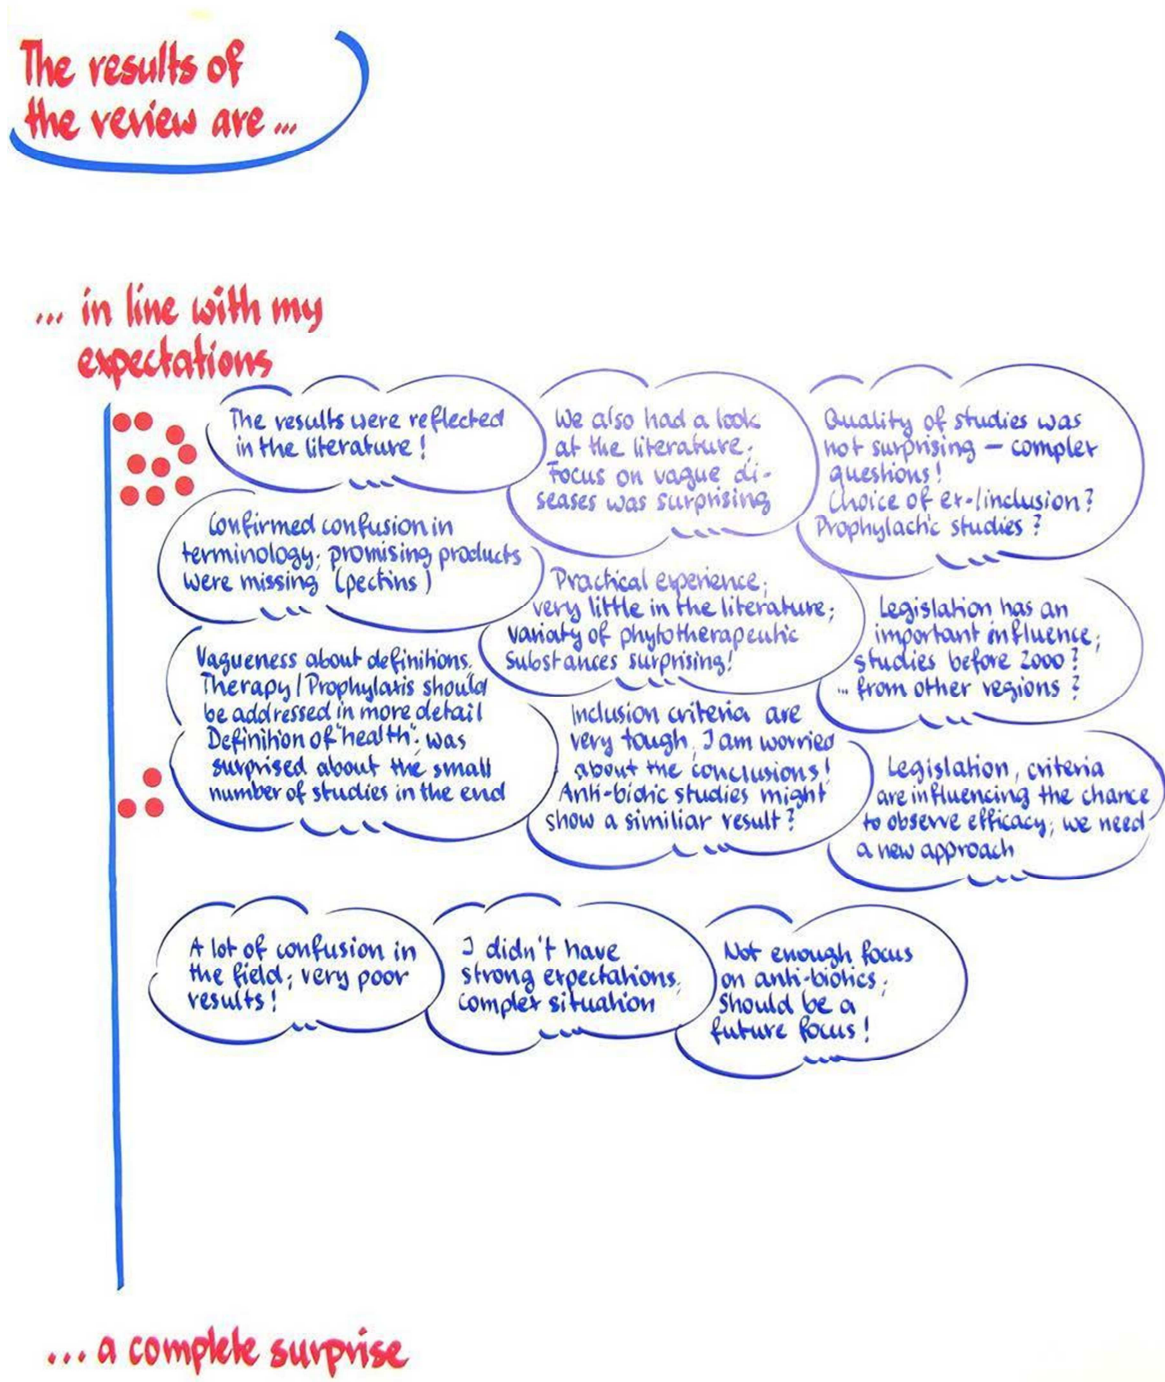 The results of
the review are ...
... in line with my
expectations
The results were reflected
in the literature!
We also had a look
at the literature;
Focus on vague di-
seases was surprising
Quality of studies was
not surprising – complex
questions!
Choice of ex-/inclusion?
Prophylactic studies?
Confirmed confusion in
terminology; promising products
were missing (pectins)
Practical experience;
very little in the literature;
variaty of phytotherapeutic
substances surprising!
Legislation has an
important influence;
studies before 2000?
... from other regions?
Vagueness about definitions.
Therapy/Prophylaxis should
be addressed in more detail
Definition of "health"; was
surprised about the small
number of studies in the end
Inclusion criteria are
very tough, I am worried
about the conclusions!
Anti-biotic studies might
show a similiar result?
Legislation, criteria
are influencing the chance
to observe efficacy; we need
a new approach
A lot of confusion in
the field; very poor
results!
I didn't have
strong expectations,
complex situation
Not enough focus
on anti-biotics;
should be a
future focus!
... a complete surprise